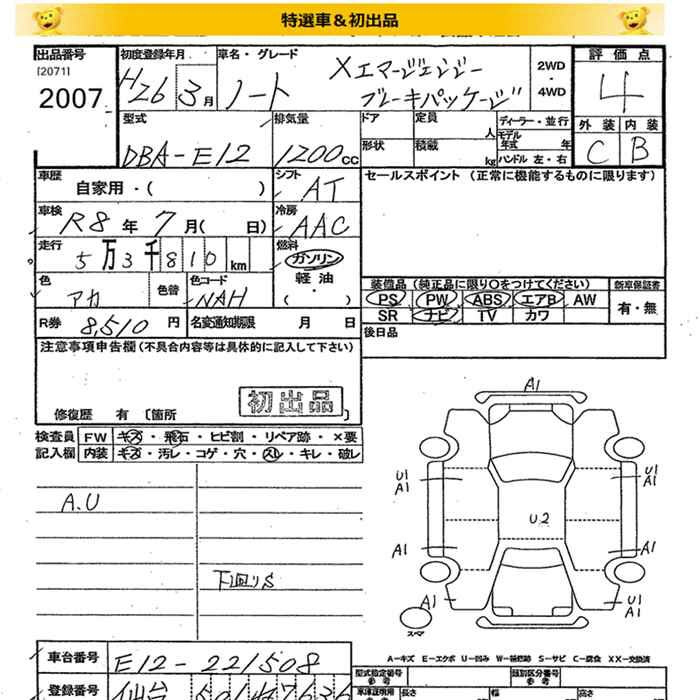 特選車&初出品
出品番号 初度登録年月 車名・グレード
[2071] 2007
H26 3月 ノート Xエマージェンシーブレーキパッケージ 2WD・4WD
評価点 4
外装 内装
C B
型式 排気量 ドア 定員 人 ディーラー・並行
DBA-E12 1200cc 形状 積載 kg モデル年式 年
ハンドル 左・右
車歴 自家用・( ) シフト AT
セールスポイント (正常に機能するものに限ります)
車検 R8年 7月( 日) 冷房 AAC
走行 5万3千810 km 燃料 ガソリン 軽油 ・( )
色 アカ 色替 色コード NAH
装備品(純正品に限り○をつけてください) 新車保証書
PS PW ABS エアB AW 有・無
SR ナビ TV カワ
R券 8,510円 名変通知期限 月 日
後日品
注意事項申告欄(不具合内容等は具体的に記入して下さい)
初出品
修復歴 有 〔箇所 〕
検査員記入欄 FW キズ・飛石・ヒビ割・リペア跡・×要
内装 キズ・汚レ・コゲ・穴・スレ・キレ・破レ
A.U
下回りS
A1
U1 A1
U1 A1
U.2
A1
A1
A1
U1 A1
スペア
A-キズ E-エクボ U-凹み W-補修跡 S-サビ C-腐食 XX-交換済
車台番号 E12-221508
型式指定番号 参考 類別区分番号 参考
登録番号 仙台 501
車庫証明用 参考 長さ 幅 高さ